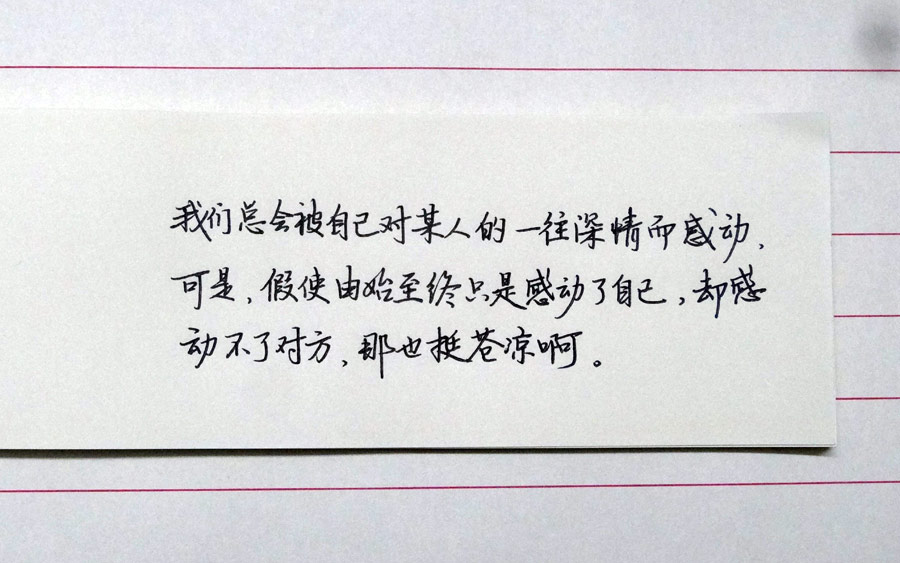 我们总会被自己对某人的一往深情而感动，
可是，假使由始至终只是感动了自己，却感
动不了对方，那也挺苍凉啊。